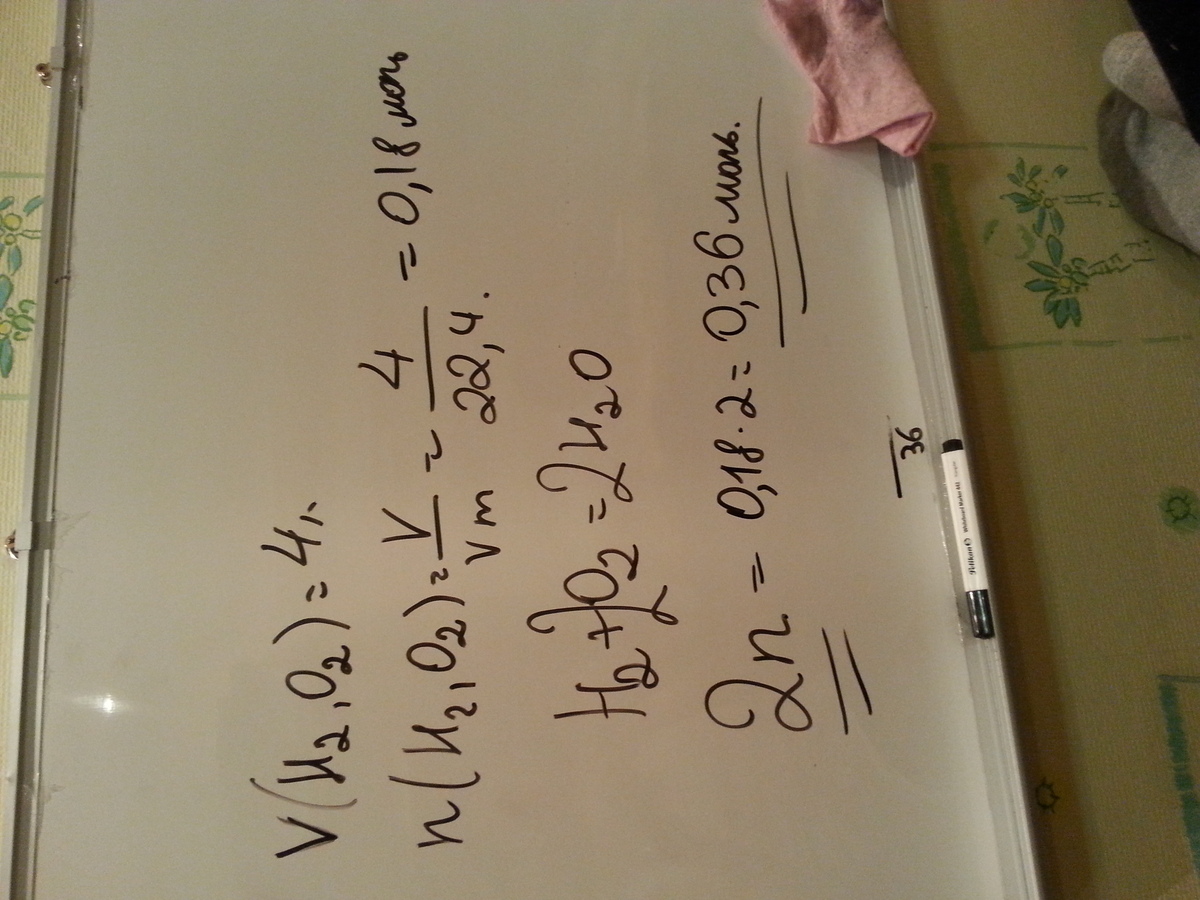 V(H₂,O₂) = 4л.
n(H₂,O₂) = V/Vm = 4/22,4. = 0,18 моль
H₂ + 2O₂ = 2H₂O
2n = 0,18·2 = 0,36 моль.
36
Pelikan Whiteboard Marker